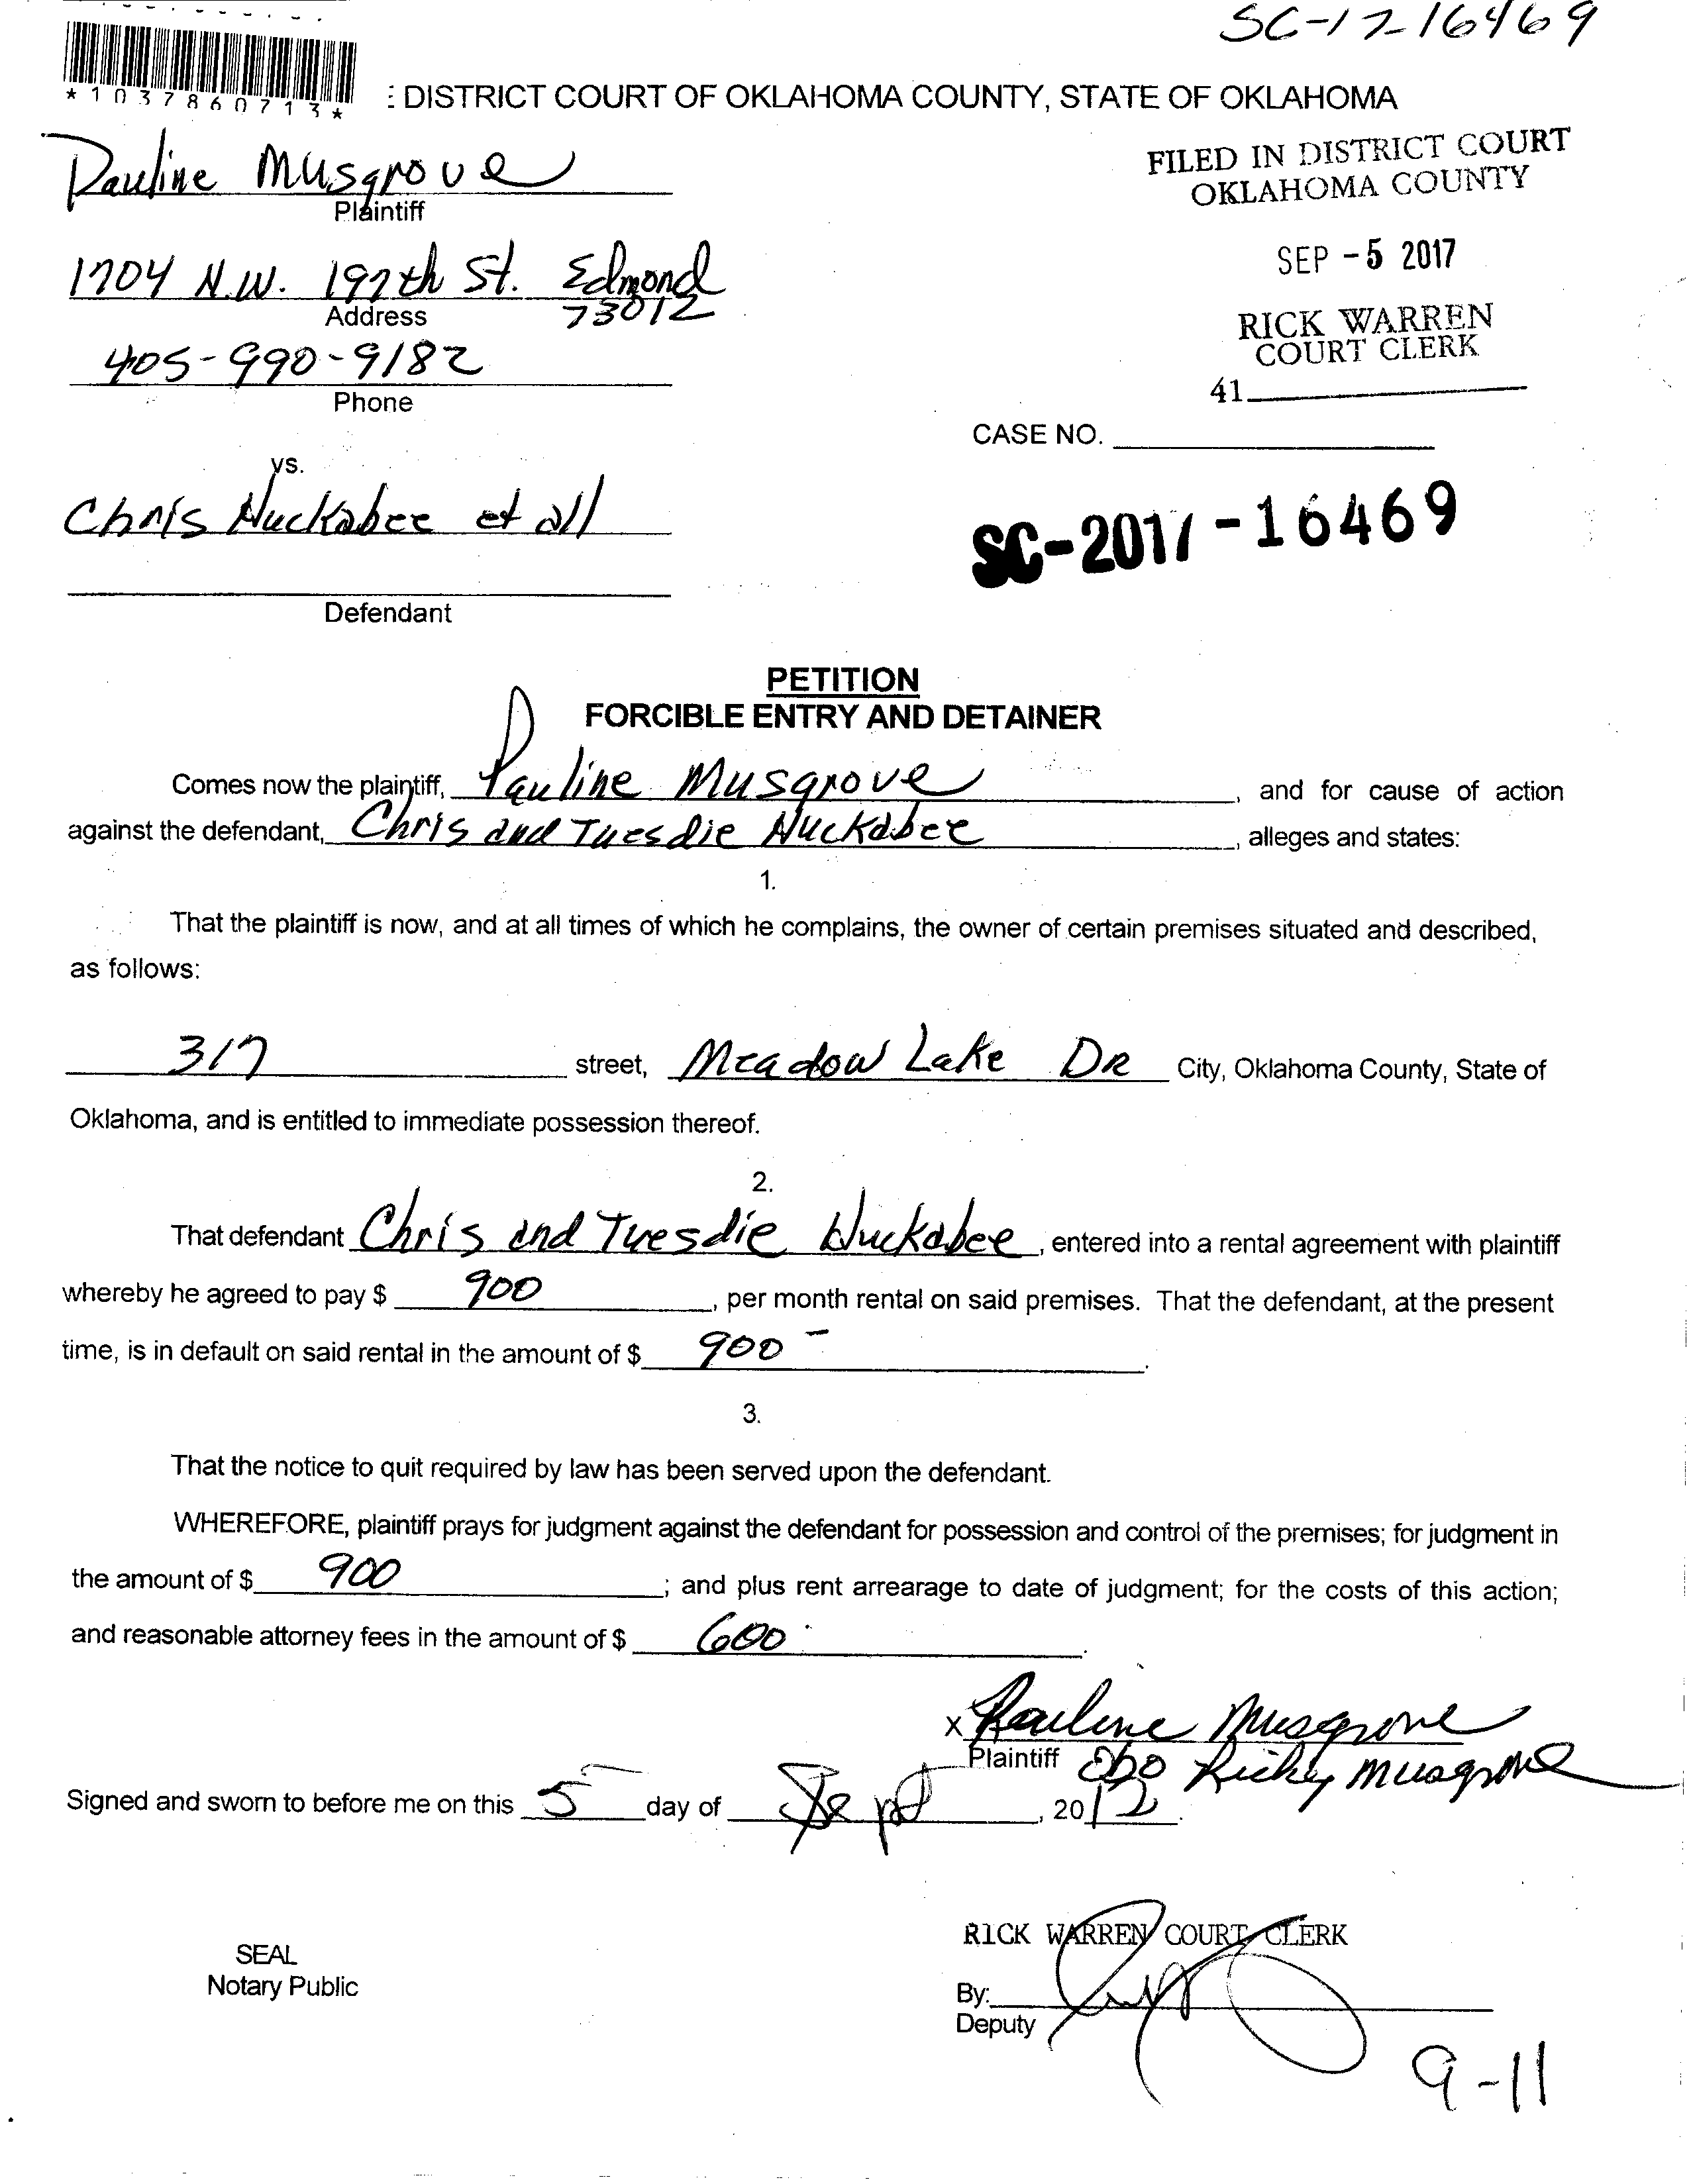 SC-17-16469
*1037860713*
: DISTRICT COURT OF OKLAHOMA COUNTY, STATE OF OKLAHOMA
Pauline Musgrove
Plaintiff
FILED IN DISTRICT COURT
OKLAHOMA COUNTY
1704 N.W. 197th St. Edmond
73012
Address
SEP -5 2017
405-990-9182
Phone
RICK WARREN
COURT CLERK
41
CASE NO.
vs.
Chris Huckabee et all
SC-2017-16469
Defendant
PETITION
FORCIBLE ENTRY AND DETAINER
Comes now the plaintiff, Pauline Musgrove, and for cause of action
against the defendant, Chris and Tuesdie Huckabee, alleges and states:
1.
That the plaintiff is now, and at all times of which he complains, the owner of certain premises situated and described,
as follows:
317 street, Meadow Lake DR City, Oklahoma County, State of
Oklahoma, and is entitled to immediate possession thereof.
2.
That defendant Chris and Tuesdie Huckabee, entered into a rental agreement with plaintiff
whereby he agreed to pay $ 900, per month rental on said premises. That the defendant, at the present
time, is in default on said rental in the amount of $ 900 -.
3.
That the notice to quit required by law has been served upon the defendant.
WHEREFORE, plaintiff prays for judgment against the defendant for possession and control of the premises; for judgment in
the amount of $ 900; and plus rent arrearage to date of judgment; for the costs of this action;
and reasonable attorney fees in the amount of $ 600.
x Pauline Musgrove
Plaintiff obo Ricky Musgrove
Signed and sworn to before me on this 5 day of Sept, 2017.
RICK WARREN COURT CLERK
SEAL
Notary Public
By:
Deputy
9-11